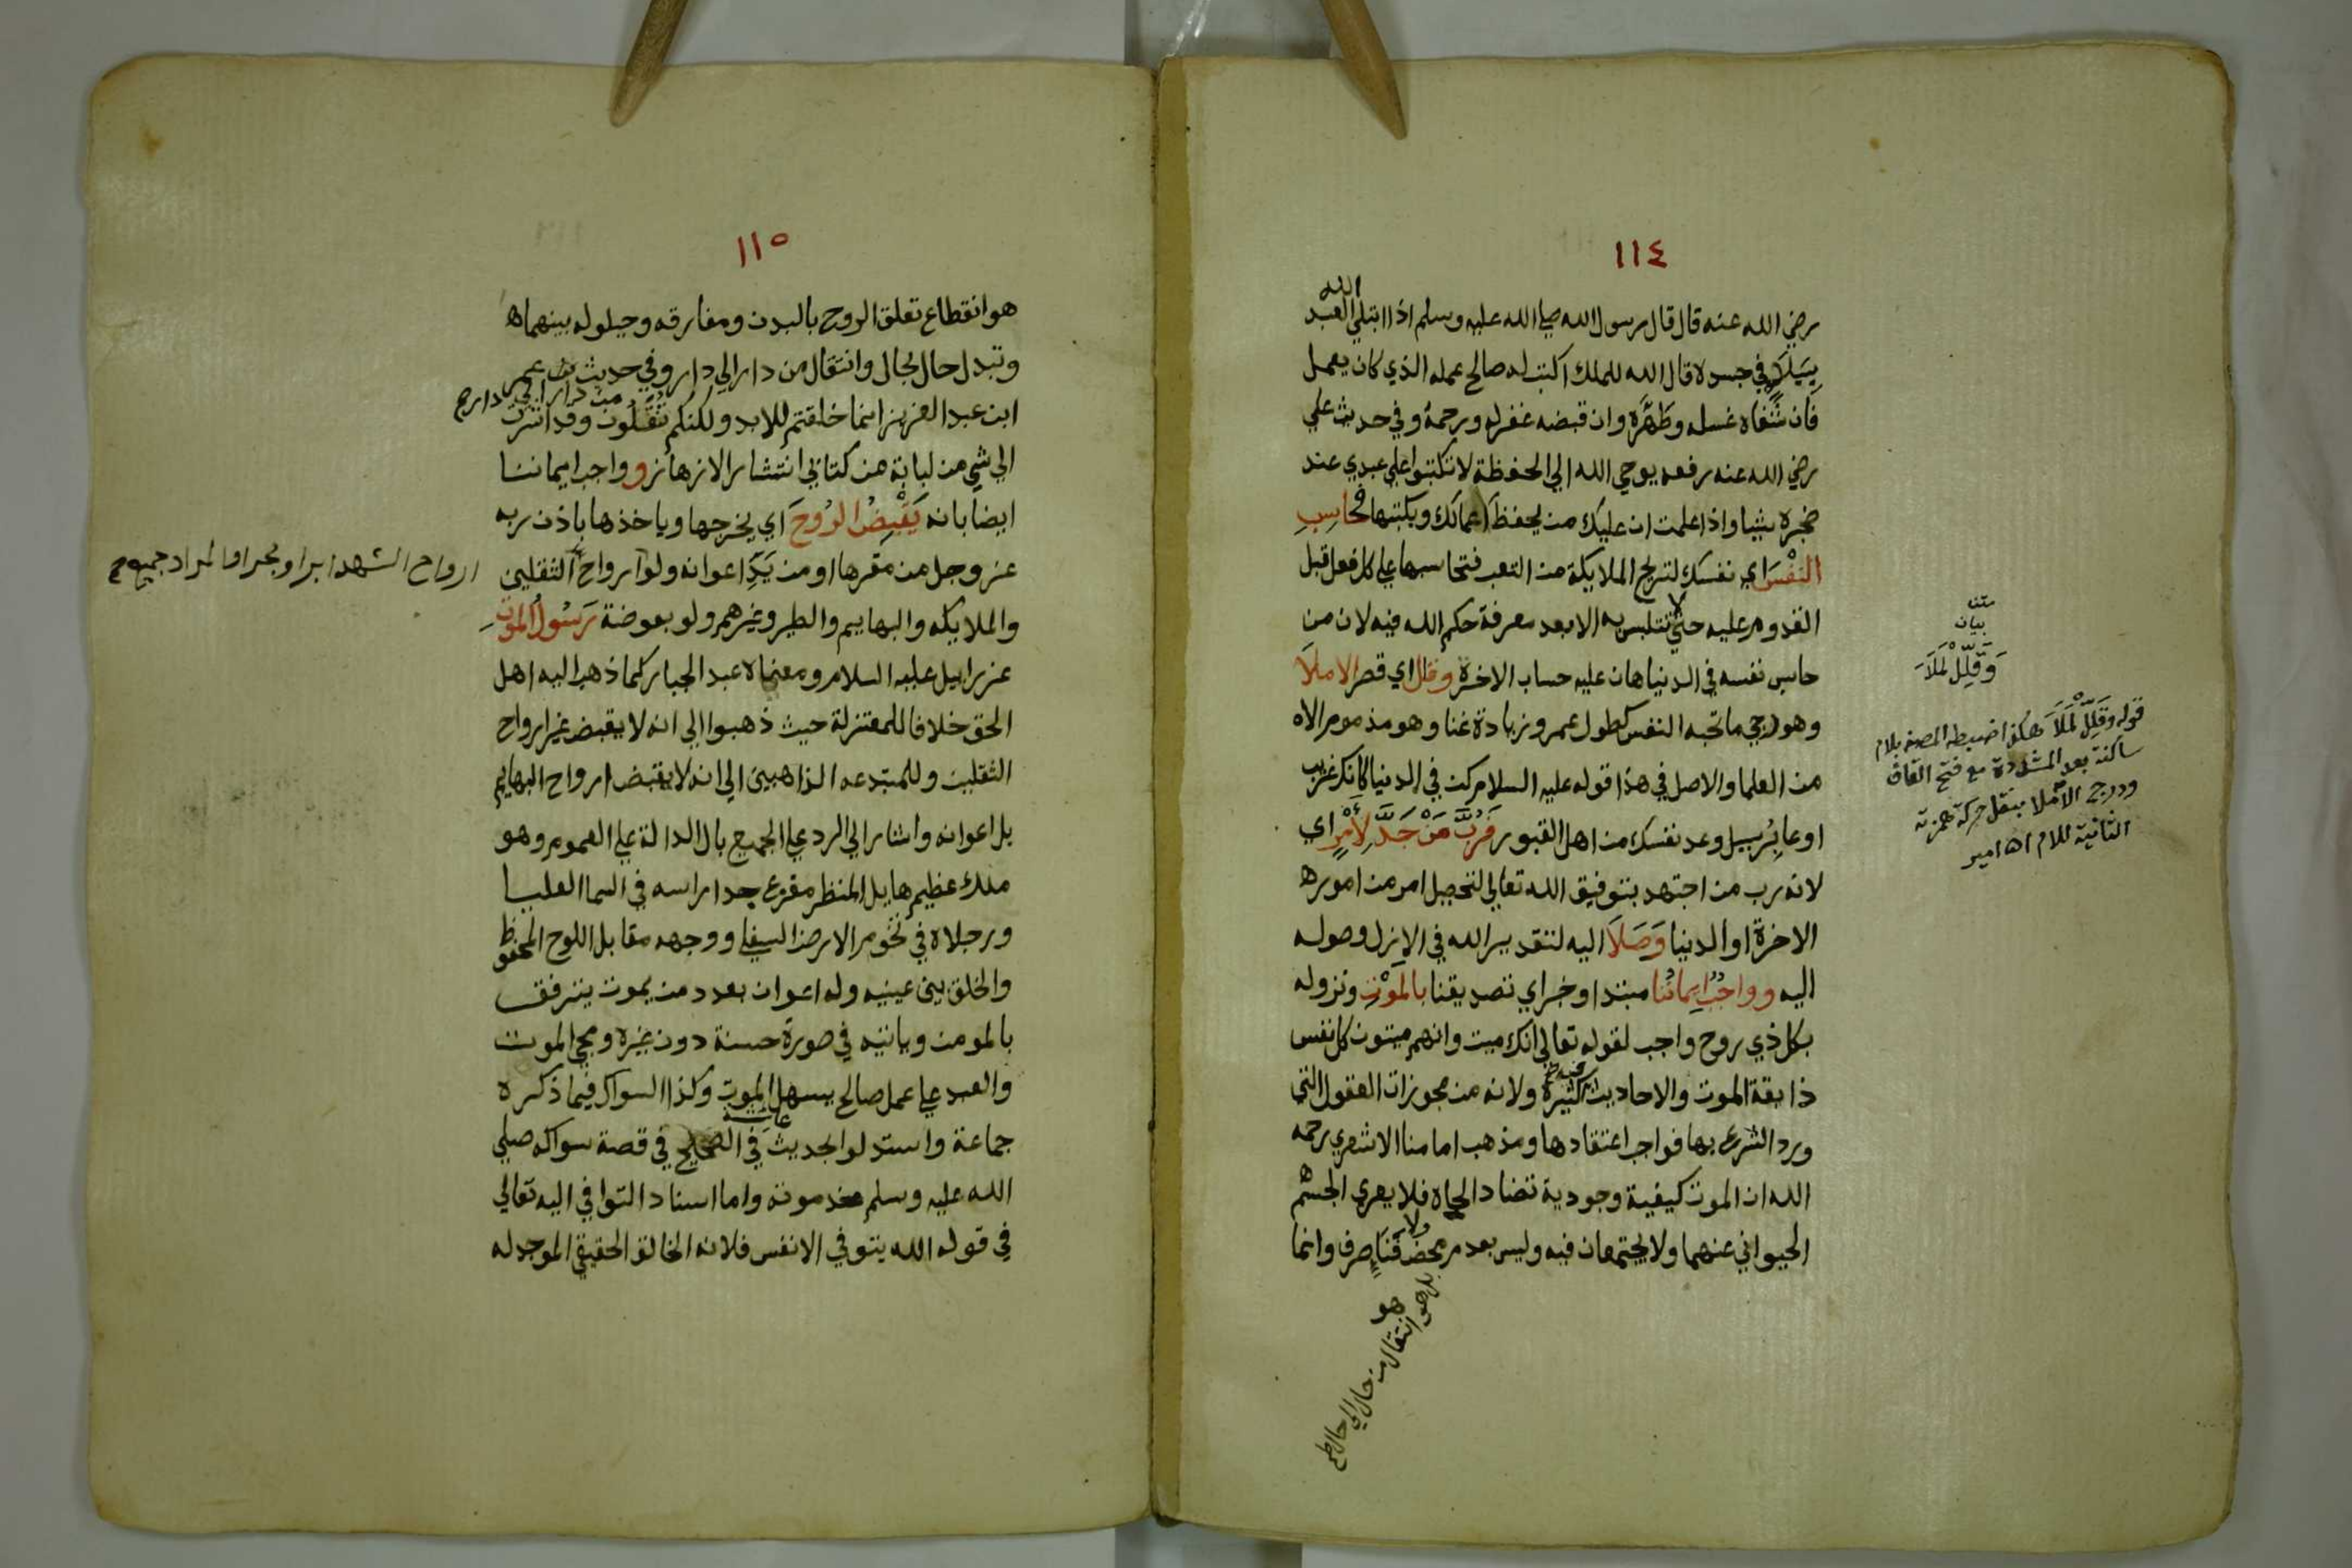 ١١٤
رضي الله عنه قال قال رسول الله صلى الله عليه وسلم اذا ابتلي الله العبد
ببلاء في جسده قال الله للملك اكتب له صالح عمله الذي كان يعمل
فان شفاه غسله وطهره وان قبضه غفر له ورحمه وفي حديث علي
رضي الله عنه رفعه يوحي الله الي الحفظة لا تكتبوا علي عبدي عند
ضجره شيا واذا علمت ان عليك من يحفظ اعمالك ويكتبها فحاسب
النفس اي نفسك لتريح الملايكة من التعب فتحاسبها علي كل فعل قبل
القدوم عليه حتي لا تتلبس به الا بعد معرفة حكم الله فيه لان من
حاسب نفسه في الدنيا هان عليه حساب الاخرة وقلل اي قصر الاملا
وهو رجي ما تحبه النفس كطول عمر وزيادة غنا وهو مذموم الا
من العلما والاصل في هذا قوله عليه السلام كن في الدنيا كانك غريب
او عابر سبيل وعد نفسك من اهل القبور فرب من جد لامر اي
لانه رب من اجتهد بتوفيق الله تعالي لتحصيل امر من امور
الاخرة او الدنيا وصلا اليه لتقدير الله في الازل وصوله
اليه وواجب ايماننا مبتدا وخبر اي تصديقنا بالموت ونزوله
بكل ذي روح واجب لقوله تعالي انك ميت وانهم ميتون كل نفس
ذايقة الموت والاحاديث فيه كثيرة ولانه من مجوزات العقول التي
ورد الشرع بها فواجب اعتقادها ومذهب امامنا الاشعري رحمه
الله ان الموت كيفية وجودية تضاد الحياه فلا يعري الجسم
الحيواني عنهما ولا يجتمعان فيه وليس بعدم محض ولا فناء صرف وانما
هو
بل هو انتقال من حال الي حال
متن
بيان
وقلل لملا
قوله وقلل لملا هكذا ضبطه المصنف بلام
ساكنة بعد المشددة مع فتح القاف
ودرج الاملا بنقل حركة همزته
الثانية للام اه امير
١١٥
هو انقطاع تعلق الروح بالبدن ومفارقه وحيلوله بينهما
وتبدل حال بحال وانتقال من دار الي دار وفي حديث عمر
ابن عبد العزيز انما خلقتم للابد ولكنكم تنقلون من دار الي دار وقد اشرت
الي شي من لبابه من كتابي انتشار الازهار وواجب ايماننا
ايضا بانه يقبض الروح اي يخرجها وياخذها باذن ربه
عز وجل من مقرها او من يد اعوانه ولو ارواح الثقلين
والملايكه والبهايم والطير وغيرهم ولو بعوضة رسول الموت
عزراييل عليه السلام ومعناه عبد الجبار كما ذهب اليه اهل
الحق خلافا للمعتزلة حيث ذهبوا الي انه لا يقبض غير ارواح
الثقلين وللمبتدعه الذاهبين الي انه لا يقبض ارواح البهايم
بل اعوانه واشار الي الرد علي الجميع بال الدالة علي العموم وهو
ملك عظيم هايل المنظر مفزع جدا راسه في السما العليا
ورجلاه في تخوم الارض السفلي ووجهه مقابل اللوح المحفوظ
والخلق بين عينيه وله اعوان بعدد من يموت يترفق
بالمومن وياتيه في صورة حسنة دون غيره ومجي الموت
والعبد علي عمل صالح يسهل الموت وكذا السواك فيما ذكره
جماعة واستدلوا بحديث عايشة في الصحيح في قصة سواكه صلي
الله عليه وسلم عند موته واما اسناد التوافي اليه تعالي
في قوله الله يتوفي الانفس فلانه الخالق الحقيقي الموجد له
ارواح الشهدا برا وبحرا فالمراد جميع